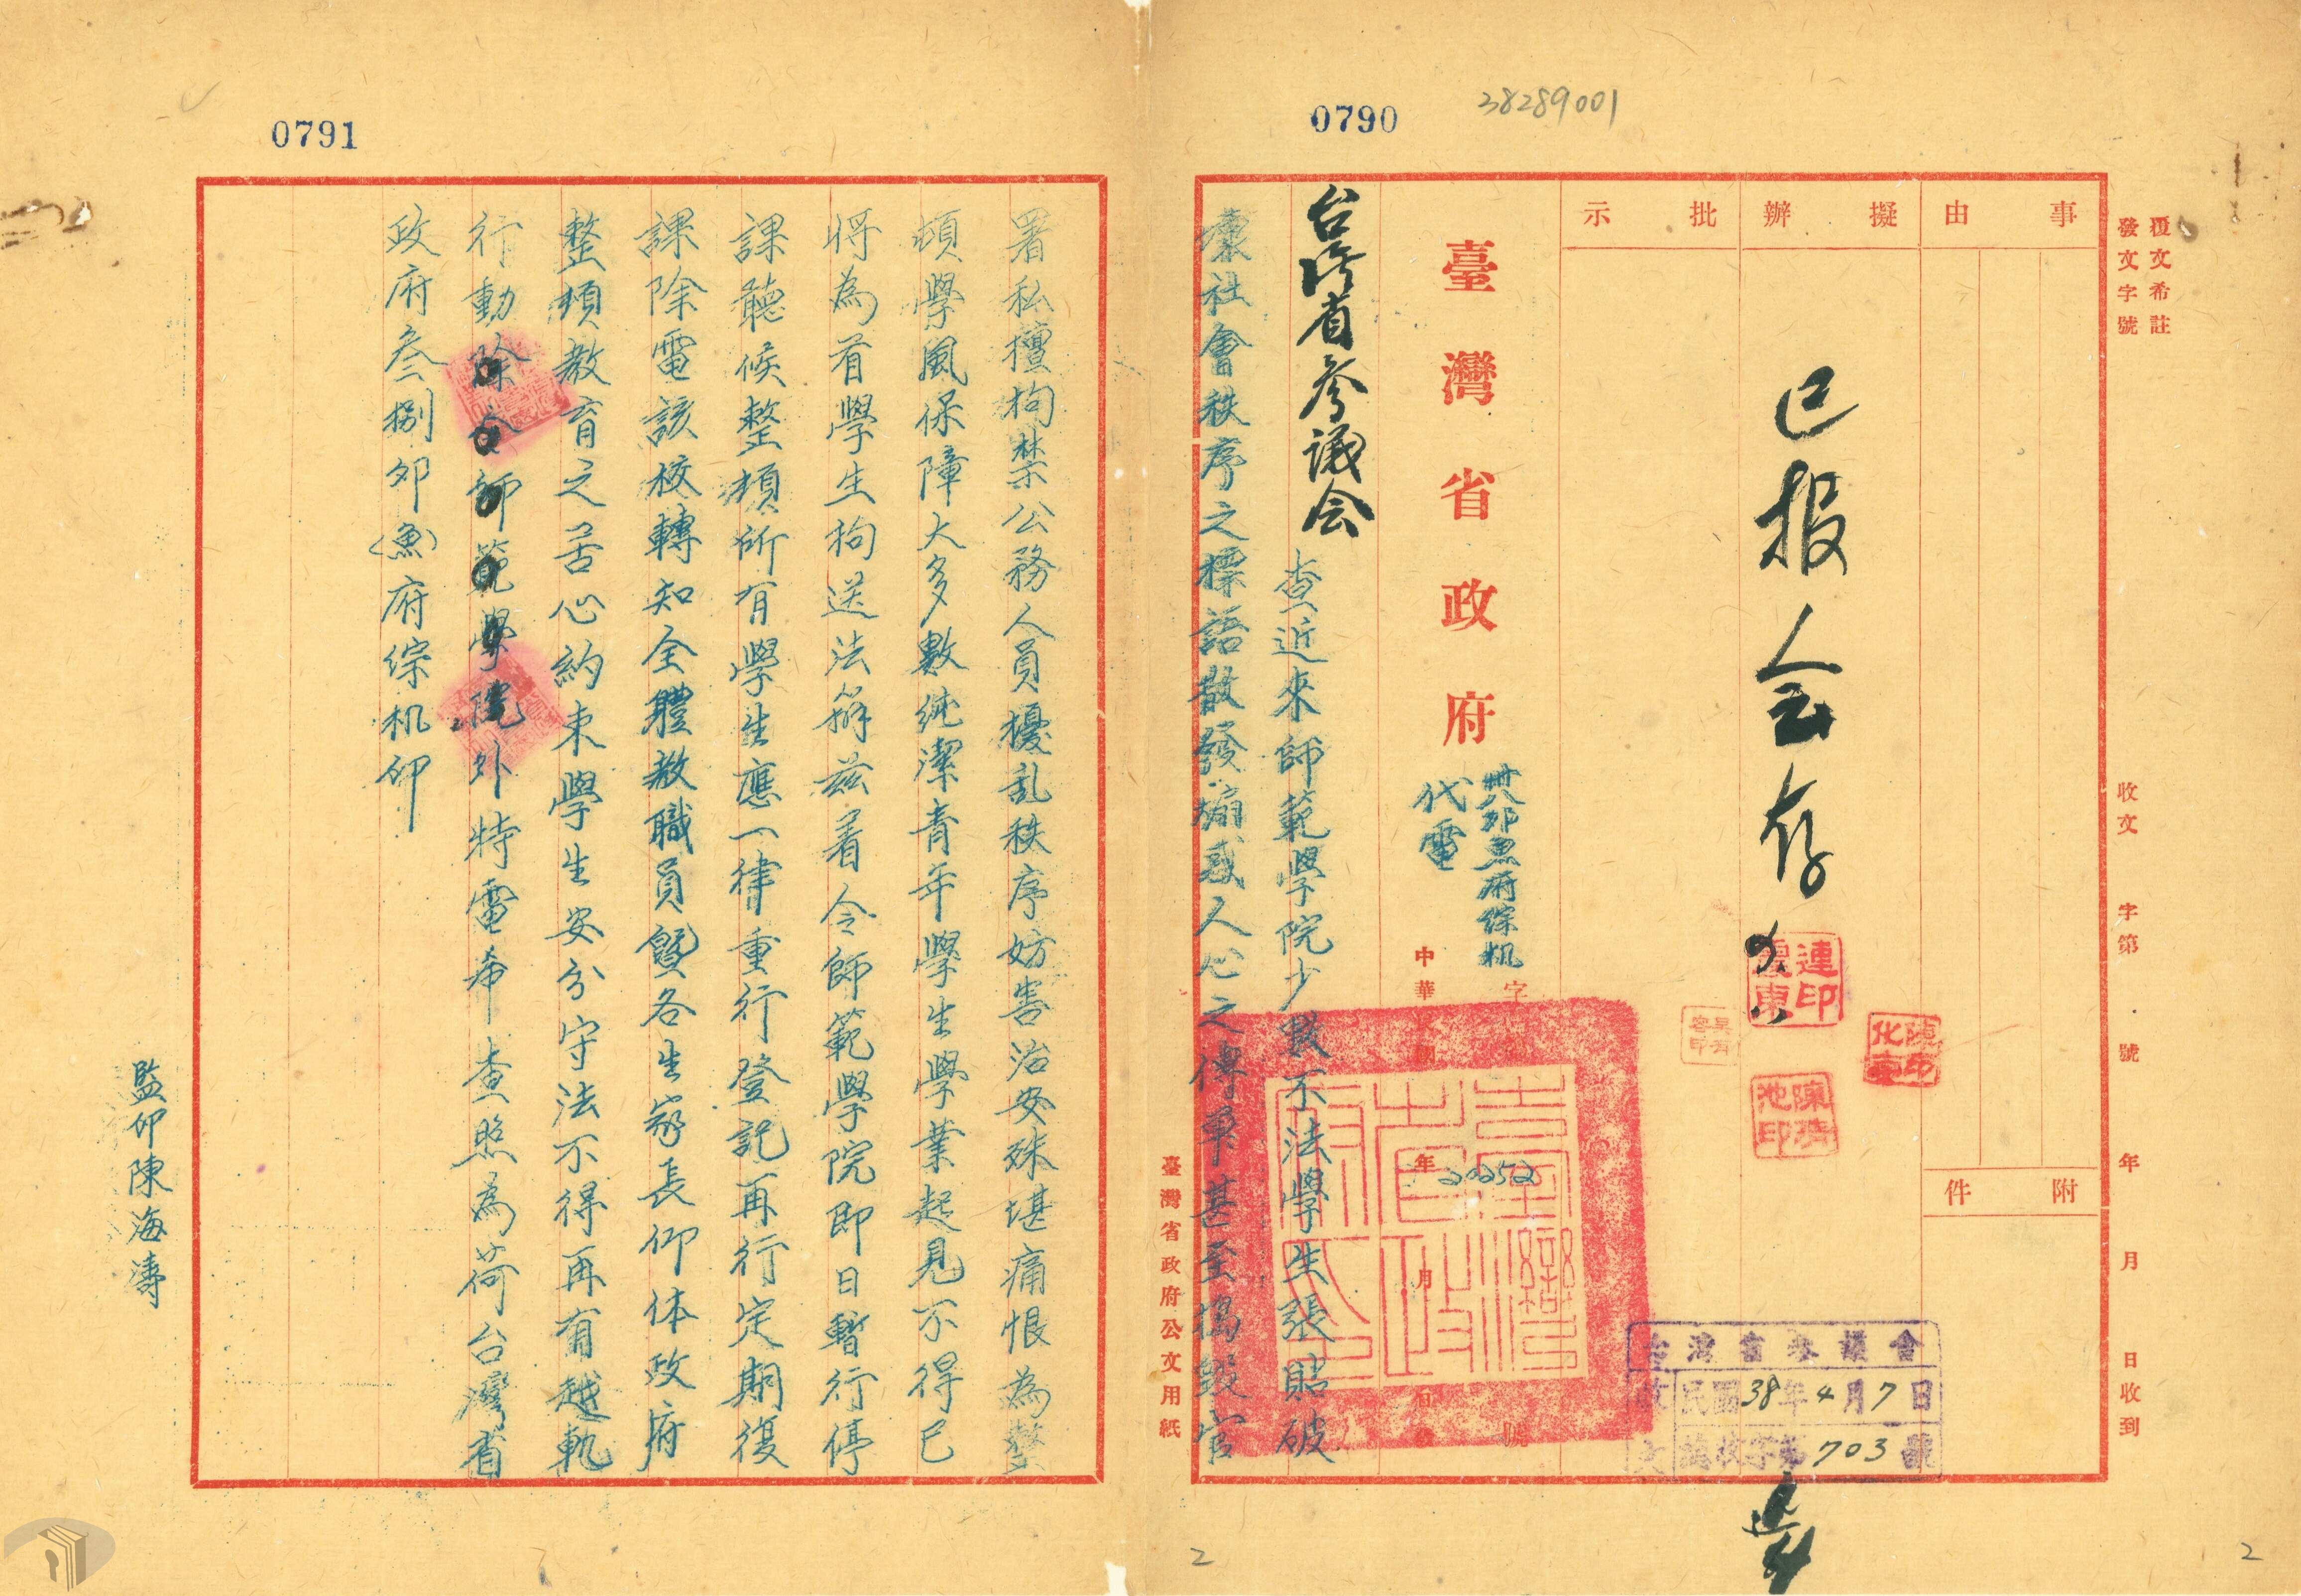 0790
38289001
覆文希註
發文字號
收文
字第
號
年
月
日收到
事由
附件
擬辦
已报会存
連震東印
批示
臺灣省政府
代電
卅八卯魚府綜机
字
號
中華
年
月
20252
台湾省参議会
查近來師範學院少數不法學生張貼破
壞社會秩序之標語散發煽惑人心之傳单甚至搗毀官
臺灣省政府公文用紙
台灣省參議會
收文
民國38年4月7日
議收字第703號
2
2
0791
署私擅拘禁公務人員擾乱秩序妨害治安殊堪痛恨為整
頓學風保障大多數純潔青年學生學業起見不得已
將為首學生拘送法辦茲着令師範學院即日暫行停
課聽候整頓所有學生應一律重行登記再行定期復
課除電該校轉知全體教職員暨各生家長仰体政府
整頓教育之苦心約束學生安分守法不得再有越軌
行動除令師範學院外特電希查照為荷台灣省
政府叁捌卯(魚)府綜机印
監印陳海濤